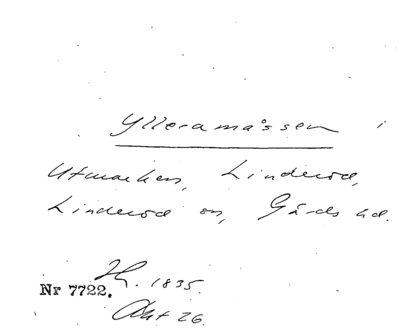 Ylleramåssen i
Utmarken, Linderöd,
Linderöd sn, Gärds hd.
H. 1835.
Nr 7722.
Akt 26.